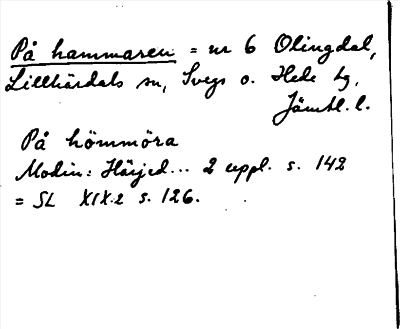 På hammaren = nr 6 Olingdal,
Lillhärdals sn, Svegs o. Hede tg,
Jämtl. l.
På hömmöra
Modin: Härjed... 2 uppl. s. 142
= SL XIX.2 s. 126.